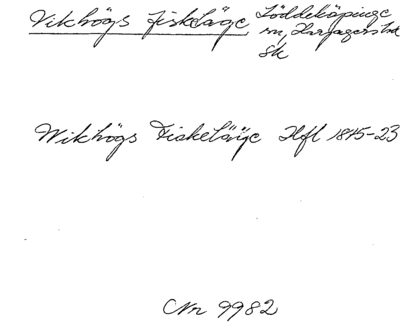 Vikhögs Fiskeläge, Löddeköpinge
sn, Harjagers hd
Sk
Wikhögs Fiskeläge Hfl 1845-23
CNr 9982